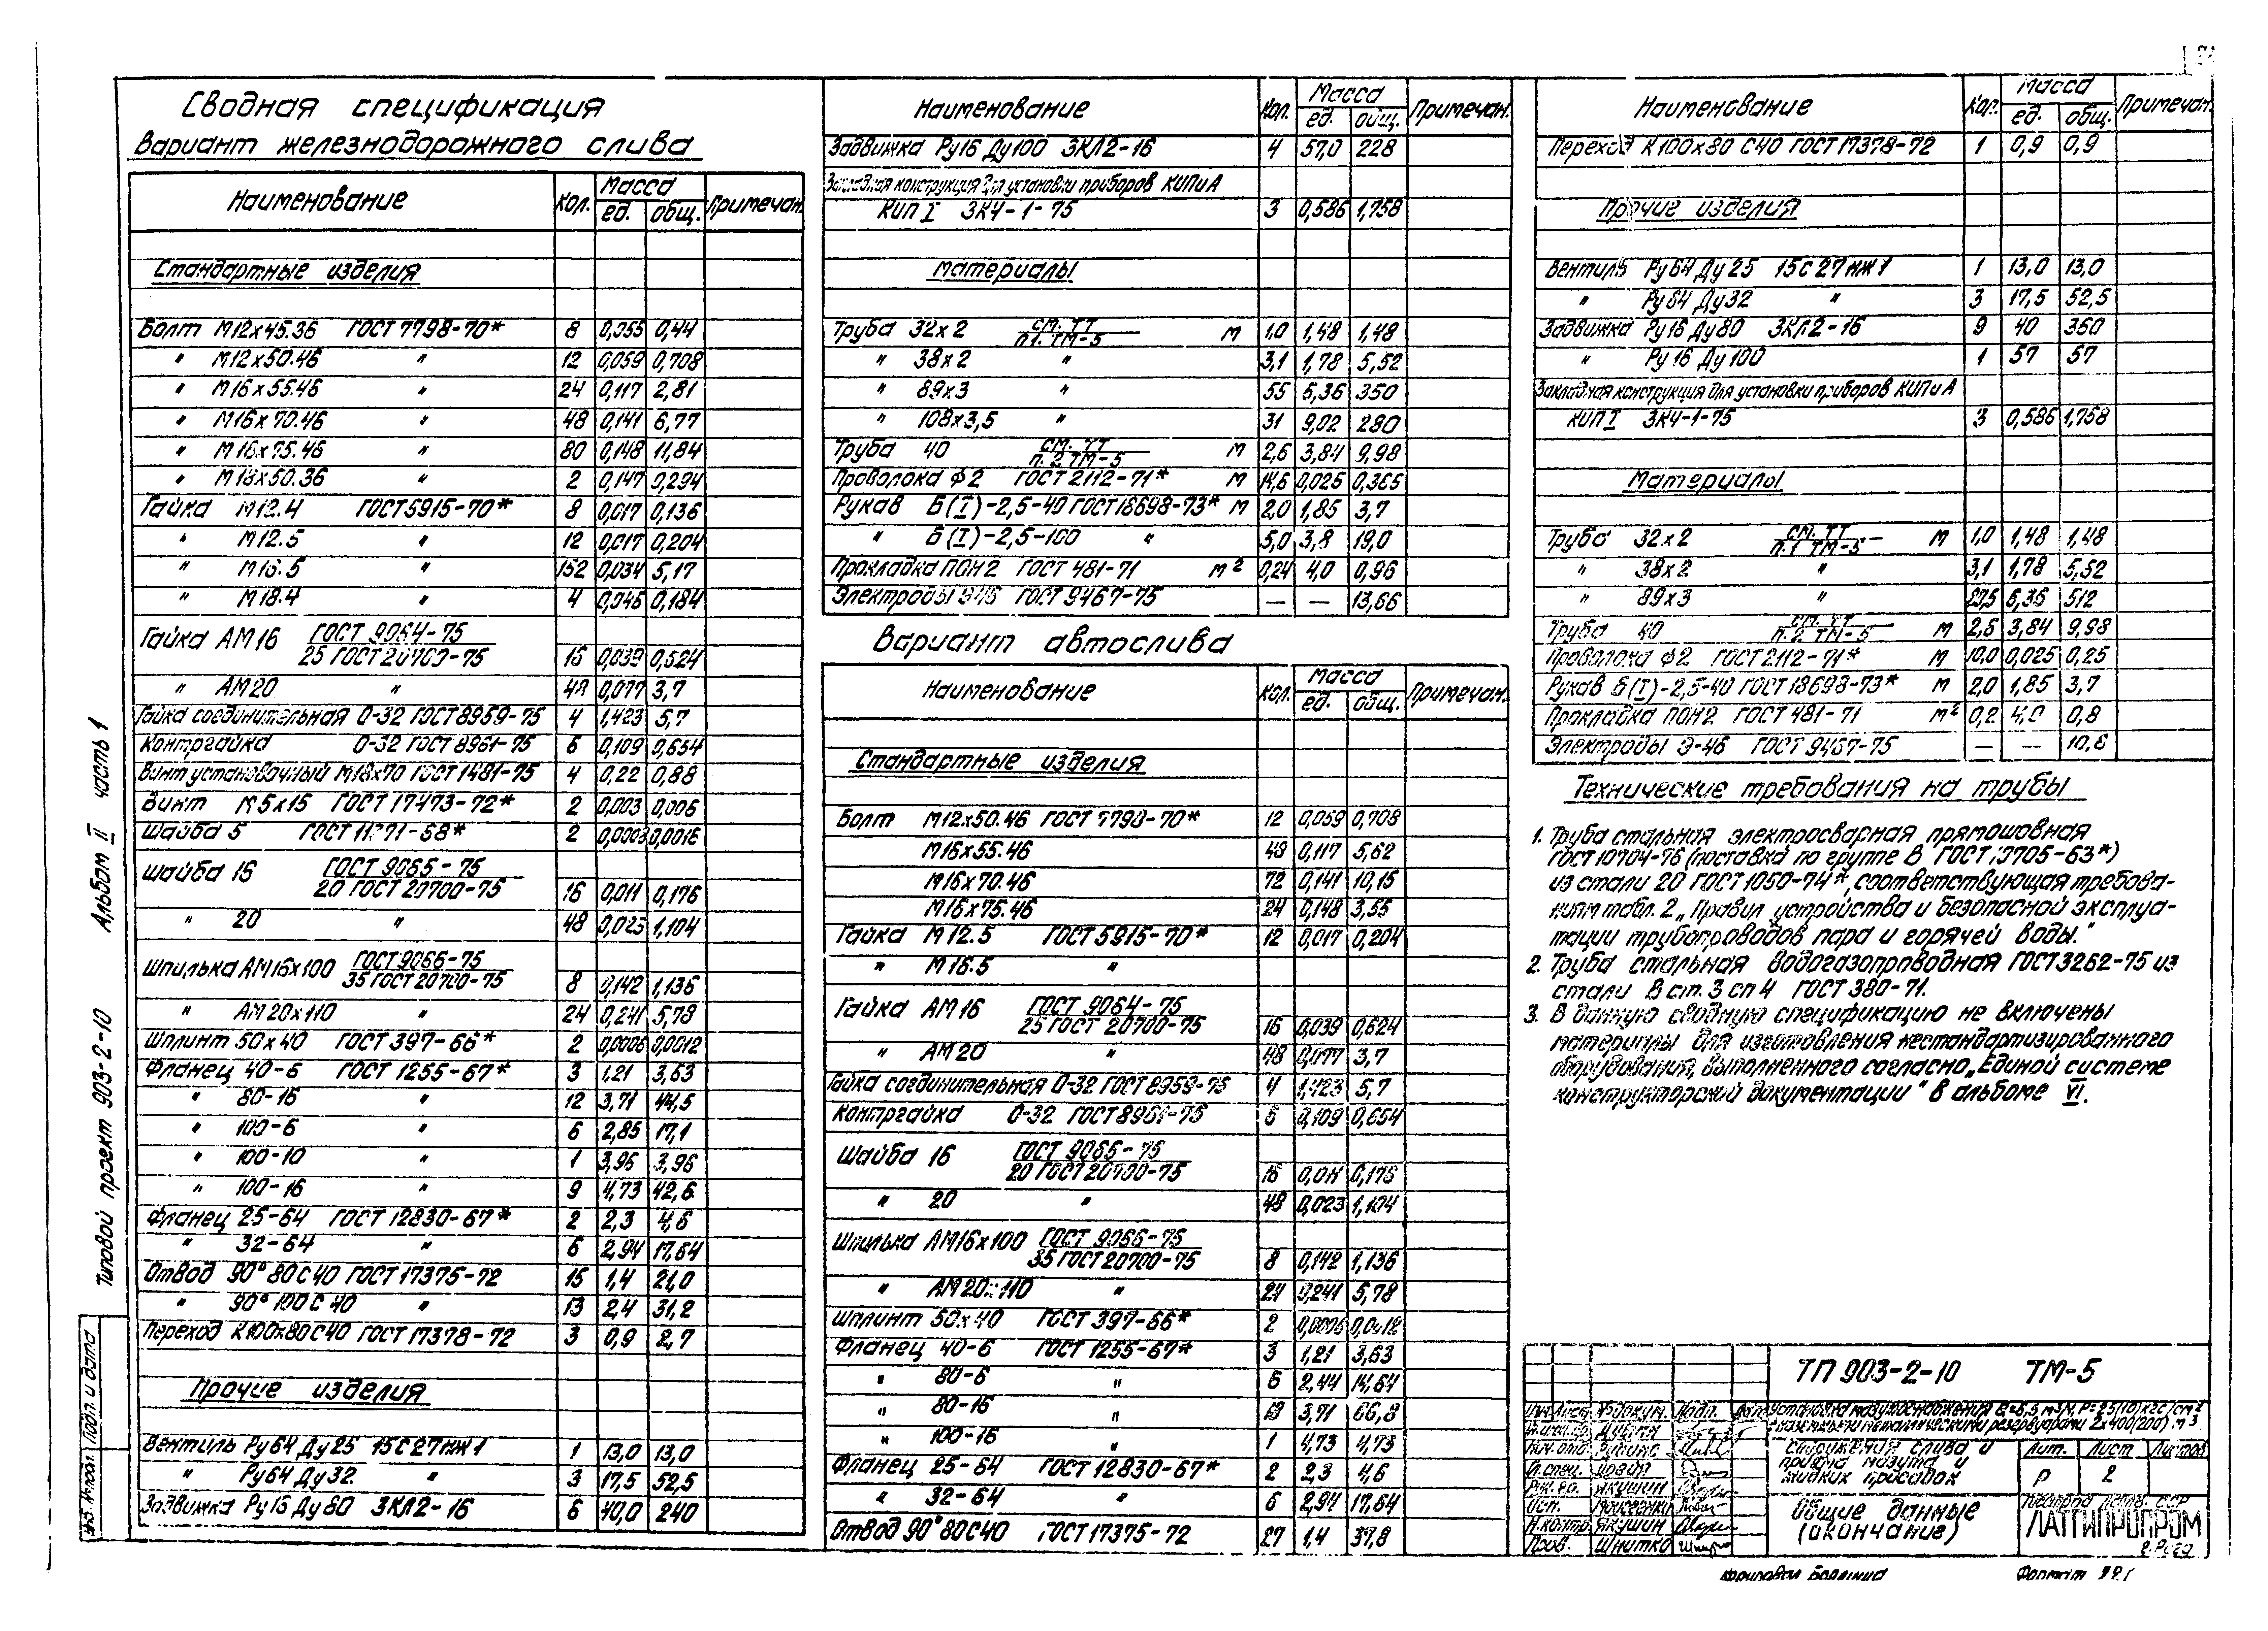 Сводная спецификация
Вариант железнодорожного слива
Наименование Кол. Масса ед. общ. Примечан.
Стандартные изделия
Болт М12х45.36 ГОСТ 7798-70* 8 0,055 0,44
" М12х50.46 " 12 0,059 0,708
" М16х55.46 " 24 0,117 2,81
" М16х70.46 " 48 0,141 6,77
" М16х75.46 " 80 0,148 11,84
" М18х50.36 " 2 0,147 0,294
Гайка М12.4 ГОСТ 5915-70* 8 0,017 0,136
" М12.5 " 12 0,017 0,204
" М16.5 " 152 0,034 5,17
" М18.4 " 4 0,046 0,184
Гайка АМ16 ГОСТ 9064-75
25 ГОСТ 20700-75 16 0,039 0,624
" АМ20 " 48 0,077 3,7
Гайка соединительная 0-32 ГОСТ 8959-75 4 1,423 5,7
Контргайка 0-32 ГОСТ 8961-75 6 0,109 0,654
Винт установочный М18х70 ГОСТ 1481-75 4 0,22 0,88
Винт М5х15 ГОСТ 17473-72* 2 0,003 0,006
Шайба 5 ГОСТ 11371-68* 2
Шайба 16 ГОСТ 9065-75
20 ГОСТ 20700-75 16 0,011 0,176
" 20 " 48 0,023 1,104
Шпилька АМ16х100 ГОСТ 9066-75
35 ГОСТ 20700-75 8 0,142 1,136
" АМ20х110 " 24 0,241 5,78
Шплинт 50х40 ГОСТ 397-66* 2 0,0006 0,0012
Фланец 40-6 ГОСТ 1255-67* 3 1,21 3,63
" 80-16 " 12 3,71 44,5
" 100-6 " 6 2,85 17,1
" 100-10 " 1 3,96 3,96
" 100-16 " 9 4,73 42,6
Фланец 25-64 ГОСТ 12830-67* 2 2,3 4,6
" 32-64 " 6 2,94 17,64
Отвод 90° 80С40 ГОСТ 17375-72 15 1,4 21,0
" 90° 100С40 " 13 2,4 31,2
Переход К100х80С40 ГОСТ 17378-72 3 0,9 2,7
Прочие изделия
Вентиль Ру64 Ду25 15С27НЖ1 1 13,0 13,0
" Ру64 Ду32 " 3 17,5 52,5
Задвижка Ру16 Ду80 ЗКЛ2-16 6 40,0 240
Наименование Кол. Масса ед. общ. Примечан.
Задвижка Ру16 Ду100 ЗКЛ2-16 4 57,0 228
Закладная конструкция для установки приборов КИПиА
КИП I ЗК4-1-75 3 0,586 1,758
Материалы
Труба 32х2 см. ТТ
п.1. ТМ-5 м 1,0 1,48 1,48
" 38х2 " 3,1 1,78 5,52
" 89х3 " 55 6,36 350
" 108х3,5 " 31 9,02 280
Труба 40 см. ТТ
п. 2 ТМ-5 м 2,6 3,84 9,98
Проволока Ф2 ГОСТ 2112-71* м 14,6 0,025 0,365
Рукав Б(I)-2,5-40 ГОСТ 18698-73* м 2,0 1,85 3,7
" Б(I)-2,5-100 " 5,0 3,8 19,0
Прокладка ПОН2 ГОСТ 481-71 м² 0,24 4,0 0,96
Электроды Э46 ГОСТ 9467-75 — — 13,66
Вариант автослива
Наименование Кол. Масса ед. общ. Примечан.
Стандартные изделия
Болт М12х50.46 ГОСТ 7798-70* 12 0,059 0,708
М16х55.46 48 0,117 5,62
М16х70.46 72 0,141 10,15
М16х75.46 24 0,148 3,55
Гайка М12.5 ГОСТ 5915-70* 12 0,017 0,204
" М16.5 "
Гайка АМ16 ГОСТ 9064-75
25 ГОСТ 20700-75 16 0,039 0,624
" АМ20 " 48 0,077 3,7
Гайка соединительная 0-32 ГОСТ 8959-75 4 1,423 5,7
Контргайка 0-32 ГОСТ 8961-75 6 0,109 0,654
Шайба 16 ГОСТ 9065-75
20 ГОСТ 20700-75 16 0,011 0,176
" 20 " 48 0,023 1,104
Шпилька АМ16х100 ГОСТ 9066-75
35 ГОСТ 20700-75 8 0,142 1,136
" АМ20х110 " 24 0,241 5,78
Шплинт 50х40 ГОСТ 397-66* 2 0,0006 0,0012
Фланец 40-6 ГОСТ 1255-67* 3 1,21 3,63
" 80-6 " 6 2,44 14,64
" 80-16 " 18 3,71 66,8
" 100-16 " 1 4,73 4,73
Фланец 25-64 ГОСТ 12830-67* 2 2,3 4,6
" 32-64 " 6 2,94 17,64
Отвод 90° 80С40 ГОСТ 17375-72 27 1,4 37,8
Наименование Кол. Масса ед. общ. Примечан.
Переход К100х80 С40 ГОСТ 17378-72 1 0,9 0,9
Прочие изделия
Вентиль Ру64 Ду25 15С27НЖ1 1 13,0 13,0
" Ру64 Ду32 " 3 17,5 52,5
Задвижка Ру16 Ду80 ЗКЛ2-16 9 40 360
" Ру16 Ду100 1 57 57
Закладная конструкция для установки приборов КИПиА
КИП I ЗК4-1-75 3 0,586 1,758
Материалы
Труба 32х2 см. ТТ
п.1 ТМ-5 м 1,0 1,48 1,48
" 38х2 " 3,1 1,78 5,52
" 89х3 " 6,36 512
Труба 40 см. ТТ
п. 2 ТМ-5 м 2,6 3,84 9,98
Проволока Ф2 ГОСТ 2112-71* м 10,0 0,025 0,25
Рукав Б(I)-2,5-40 ГОСТ 18698-73* м 2,0 1,85 3,7
Прокладка ПОН2 ГОСТ 481-71 м² 0,2 4,0 0,8
Электроды Э-46 ГОСТ 9467-75 — — 10,6
Технические требования на трубы
1. Труба стальная электросварная прямошовная
ГОСТ 10704-76 (поставка по группе В ГОСТ 10705-63*)
из стали 20 ГОСТ 1050-74*, соответствующая требова-
ниям табл. 2 „Правил устройства и безопасной эксплуа-
тации трубопроводов пара и горячей воды."
2. Труба стальная водогазопроводная ГОСТ 3262-75 из
стали В ст. 3 сп 4 ГОСТ 380-71.
3. В данную сводную спецификацию не включены
материалы для изготовления нестандартизированного
оборудования, выполненного согласно „Единой системе
конструкторской документации" в альбоме VI.
ТП 903-2-10 ТМ-5
Изм. Лист № докум. Подп. Дата
Установка мазутоснабжения Q=6,5 м³/ч, Р=25(10) кгс/см²
с наземными металлическими резервуарами 2х400(200) м³
Сооружения слива и
приема мазута и
жидких присадок
Лит. Лист Листов
Р 2
Гл. спец.
Рук. гр. Якушин
Исп.
Н.контр. Якушин
Пров. Шнитко
Общие данные
(окончание)
ЛАТГИПРОПРОМ
г. Рига
Копировал
Формат 22г
Типовой проект 903-2-10 Альбом II часть 1
Подп. и дата
Инв. № подл.